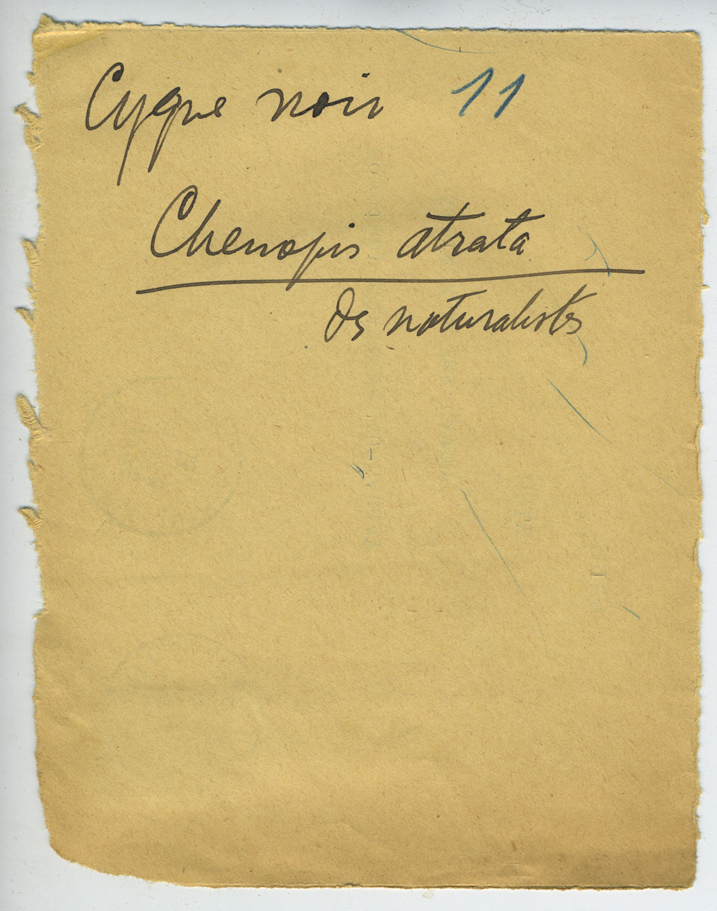 Cygne noir 11
Chenopis atrata
des naturalistes